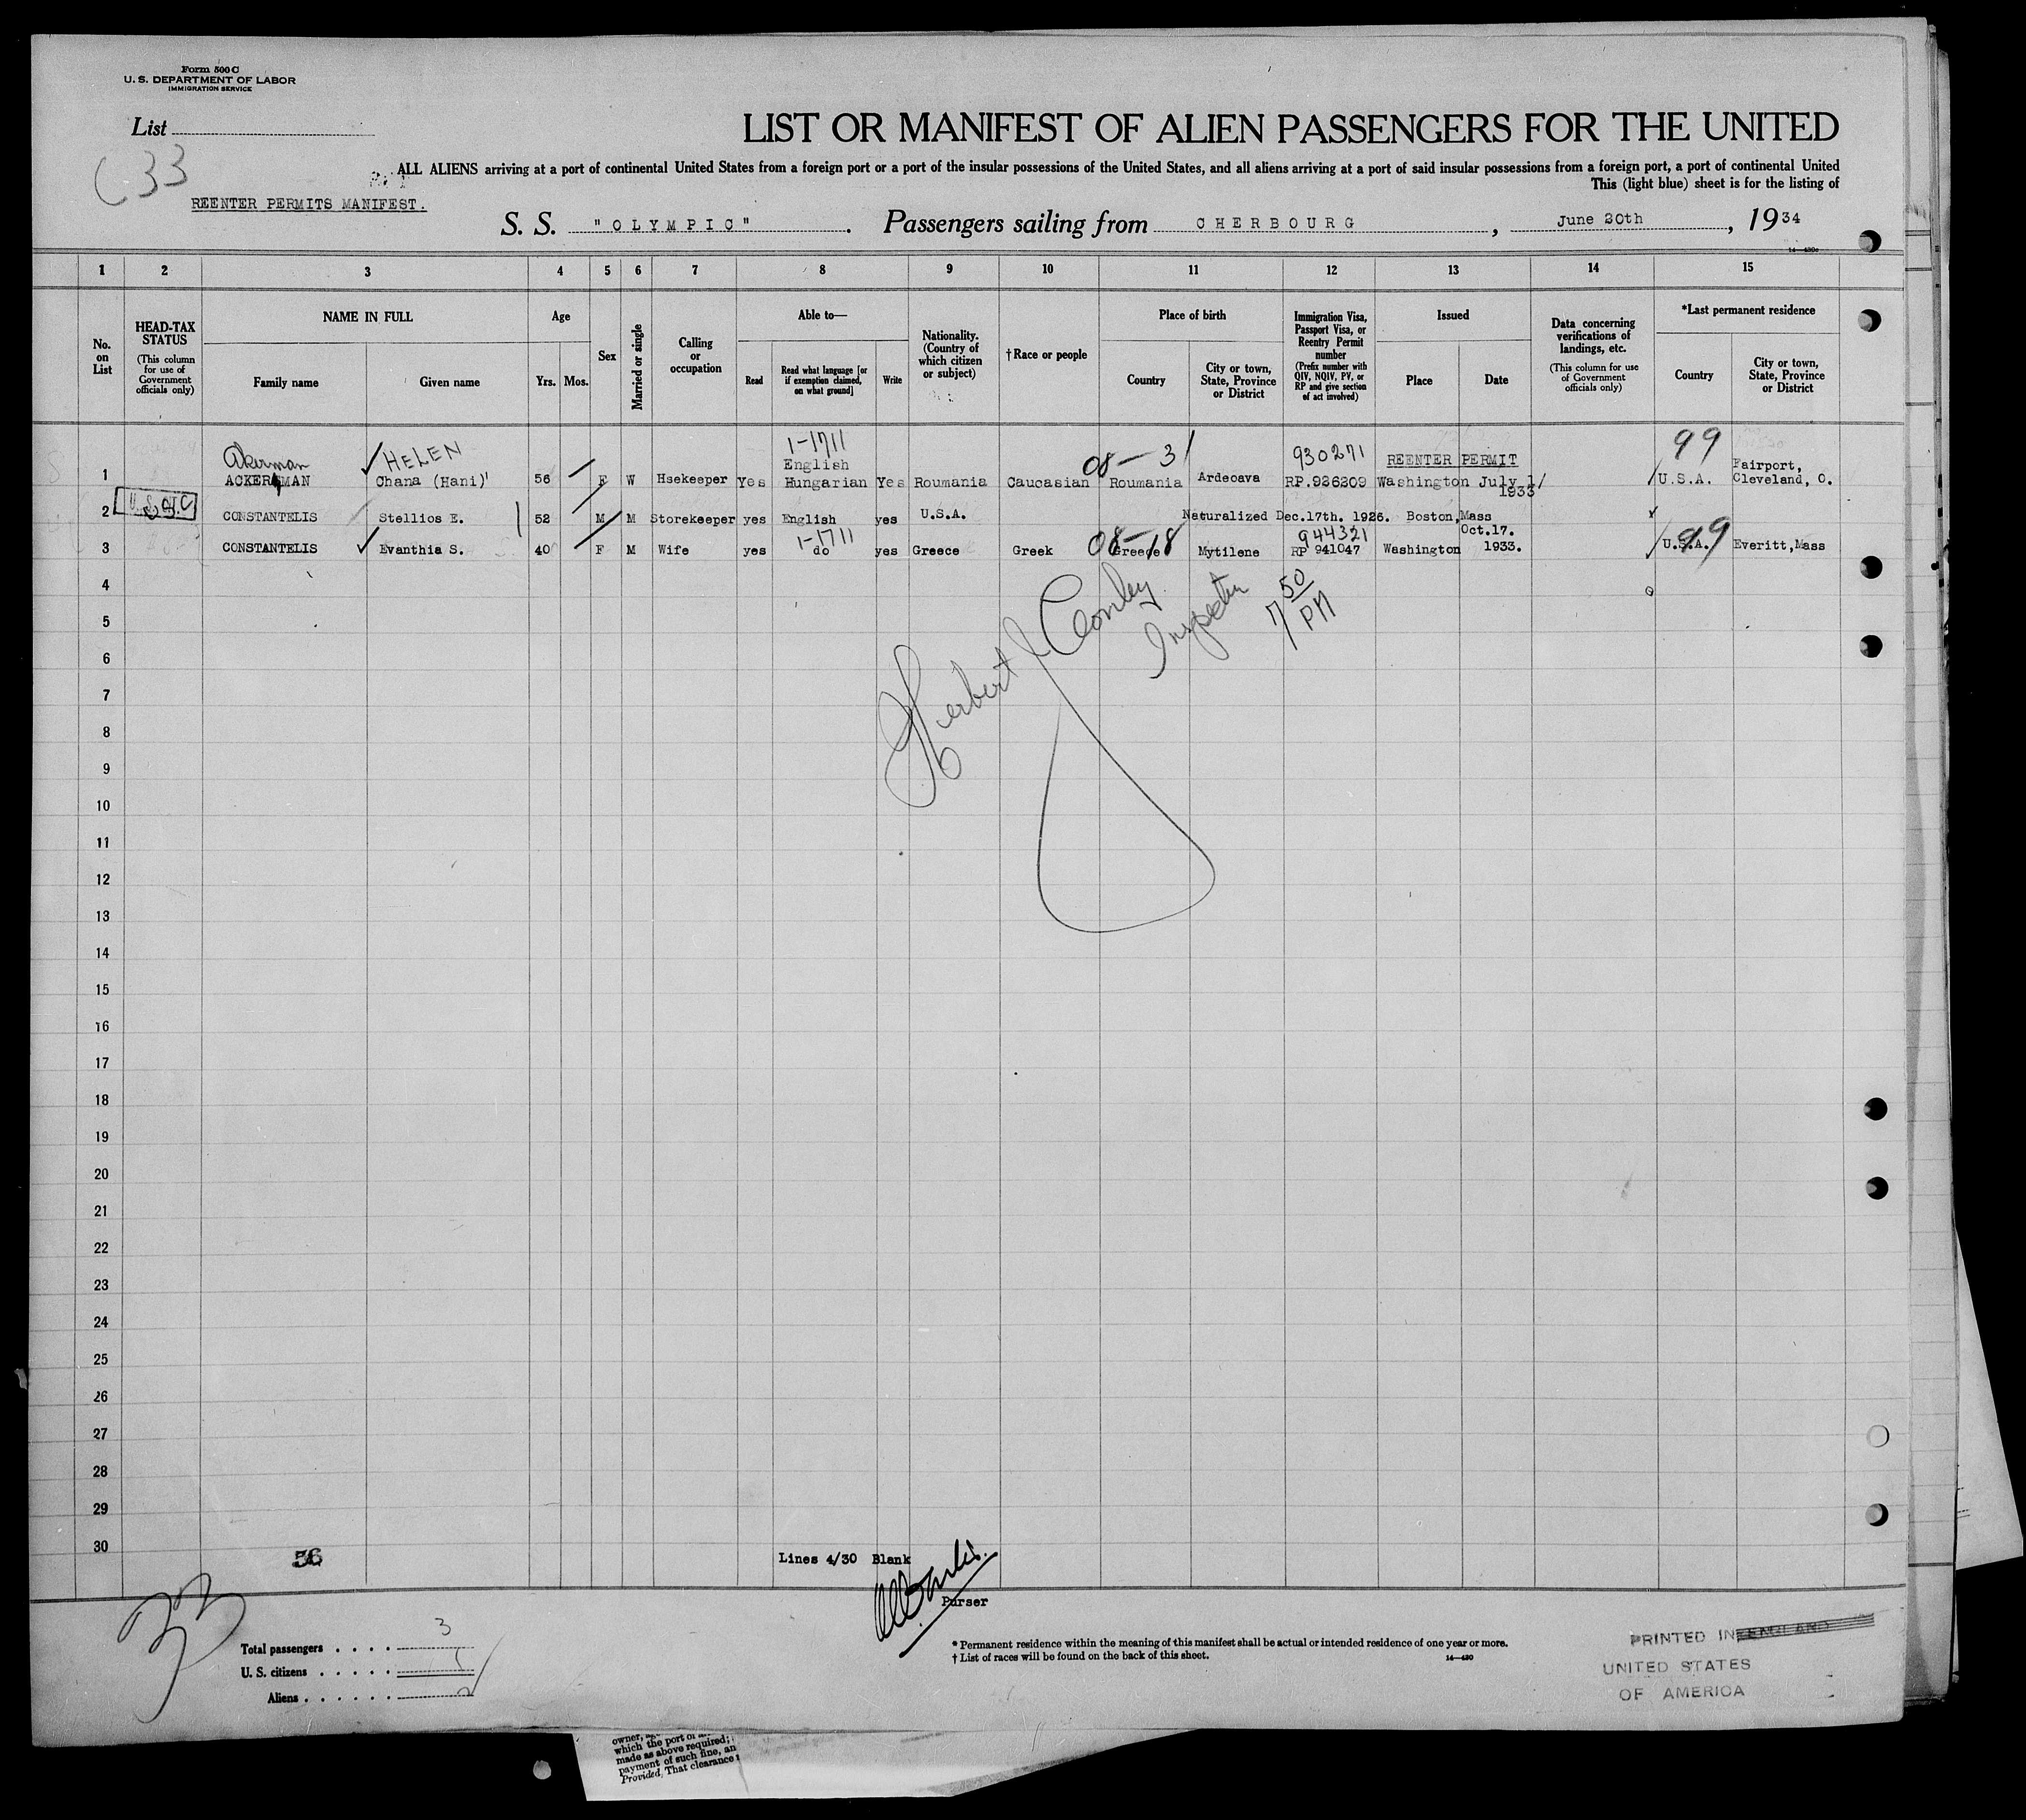 Form 500 C
U. S. DEPARTMENT OF LABOR
IMMIGRATION SERVICE
List
LIST OR MANIFEST OF ALIEN PASSENGERS FOR THE UNITED
33
ALL ALIENS arriving at a port of continental United States from a foreign port or a port of the insular possessions of the United States, and all aliens arriving at a port of said insular possessions from a foreign port, a port of continental United
This (light blue) sheet is for the listing of
REENTER PERMITS MANIFEST.
S. S. "OLYMPIC". Passengers sailing from CHERBOURG, June 20th, 1934
1 2 3 4 5 6 7 8 9 10 11 12 13 14 15
No. on List
HEAD-TAX STATUS (This column for use of Government officials only)
NAME IN FULL
Family name
Given name
Age
Yrs. Mos.
Sex
Married or single
Calling or occupation
Able to—
Read
Read what language [or if exemption claimed, on what ground]
Write
Nationality. (Country of which citizen or subject)
†Race or people
Place of birth
Country
City or town, State, Province or District
Immigration Visa, Passport Visa, or Reentry Permit number (Prefix number with QIV, NQIV, PV, or RP and give section of act involved)
Issued
Place
Date
Data concerning verifications of landings, etc. (This column for use of Government officials only)
*Last permanent residence
Country
City or town, State, Province or District
Akerman HELEN 1-1711 English 08-31 930271 REENTER PERMIT 99 Fairport,
1 ACKERMAN Chana (Hani) 56 F W Hsekeeper Yes Hungarian Yes Roumania Caucasian Roumania Ardeoava RP.926209 Washington July 1/1933 U.S.A. Cleveland, O.
2 CONSTANTELIS Stellios E. 52 M M Storekeeper yes English yes U.S.A. Naturalized Dec.17th. 1926. Boston, Mass
1-1711 08-18 944321 Oct.17. 99
3 CONSTANTELIS Evanthia S. 40 F M Wife yes do yes Greece Greek Greece Mytilene RP 941047 Washington 1933. U.S.A. Everitt, Mass
4
5
6
7
8
9
10
11
12
13
14
15
16
17
18
19
20
21
22
23
24
25
26
27
28
29
30
Herbert J Conley
Inspector
7 50 PM
56
Lines 4/30 Blank
Purser
33
Total passengers . . . . 3
U. S. citizens . . . . . 1
Aliens . . . . . . 2
* Permanent residence within the meaning of this manifest shall be actual or intended residence of one year or more.
† List of races will be found on the back of this sheet.
14—430
PRINTED IN ENGLAND
UNITED STATES
OF AMERICA
which the port of
made as above required;
payment of such fine, an
Provided, That clearance